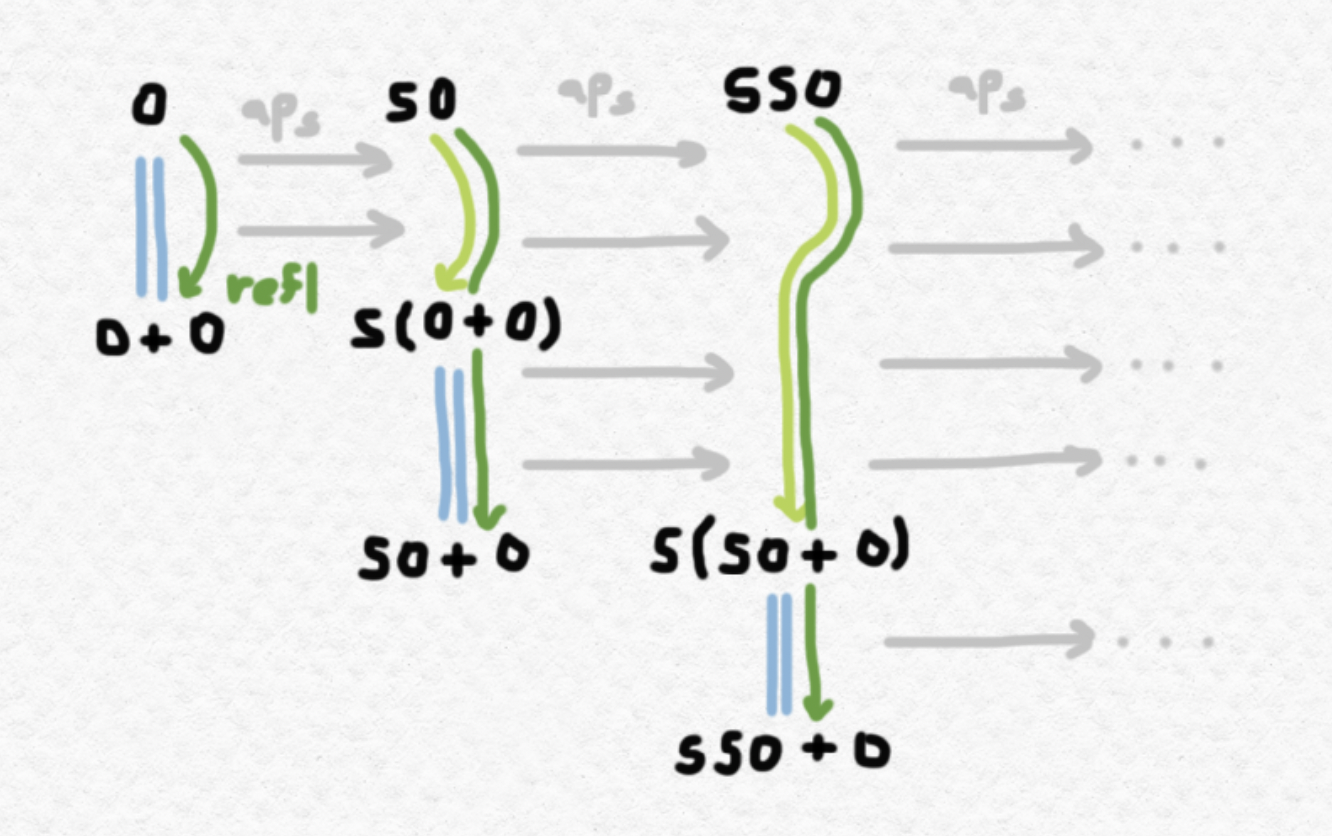 0 ap_s S0 ap_s SS0 ap_s
refl
0 + 0 S(0 + 0)
S0 + 0 S(S0 + 0)
SS0 + 0